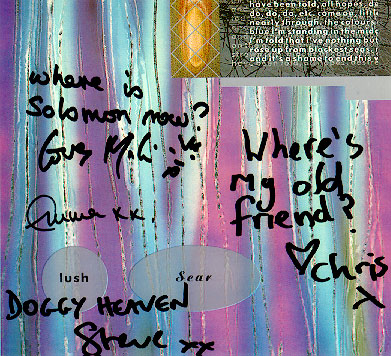 have been told, all hopes, de
do, do, da, etc. come on, little
neatly through the colours
blue I'm standing in the midd
I'm told that i've nothing but
rose up from blackest seas. I
and it's a shame to end this v
where is
Solomon now?
Where's
my old
friend?
Chris
x
Emma xx.
lush
Scar
DOGGY HEAVEN
Steve xx